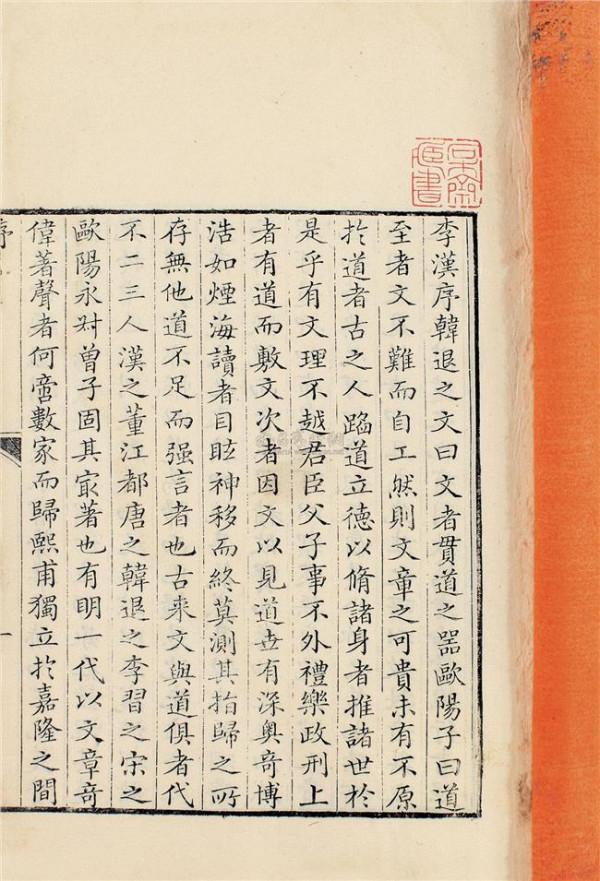 李漢序韓退之文曰文者貫道之噐歐陽子曰道
至者文不難而自工然則文章之可貴未有不原
扵道者古之人蹈道立德以脩諸身者推諸世扵
是乎有文理不越君臣父子事不外禮樂政刑上
者有道而敷文次者因文以見道丗有深奥奇博
浩如煙海讀者目眩神移而終莫測其指歸之所
存無他道不足而强言者也古来文與道俱者代
不二三人漢之董江都唐之韓退之李習之宋之
歐陽永叔曽子固其㝡著也有明一代以文章奇
偉著聲者何啻數家而歸熙甫獨立扵嘉隆之間
序
一